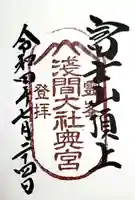 富士山頂上
登拝
浅間大社奥宮
令和四年七月二十四日